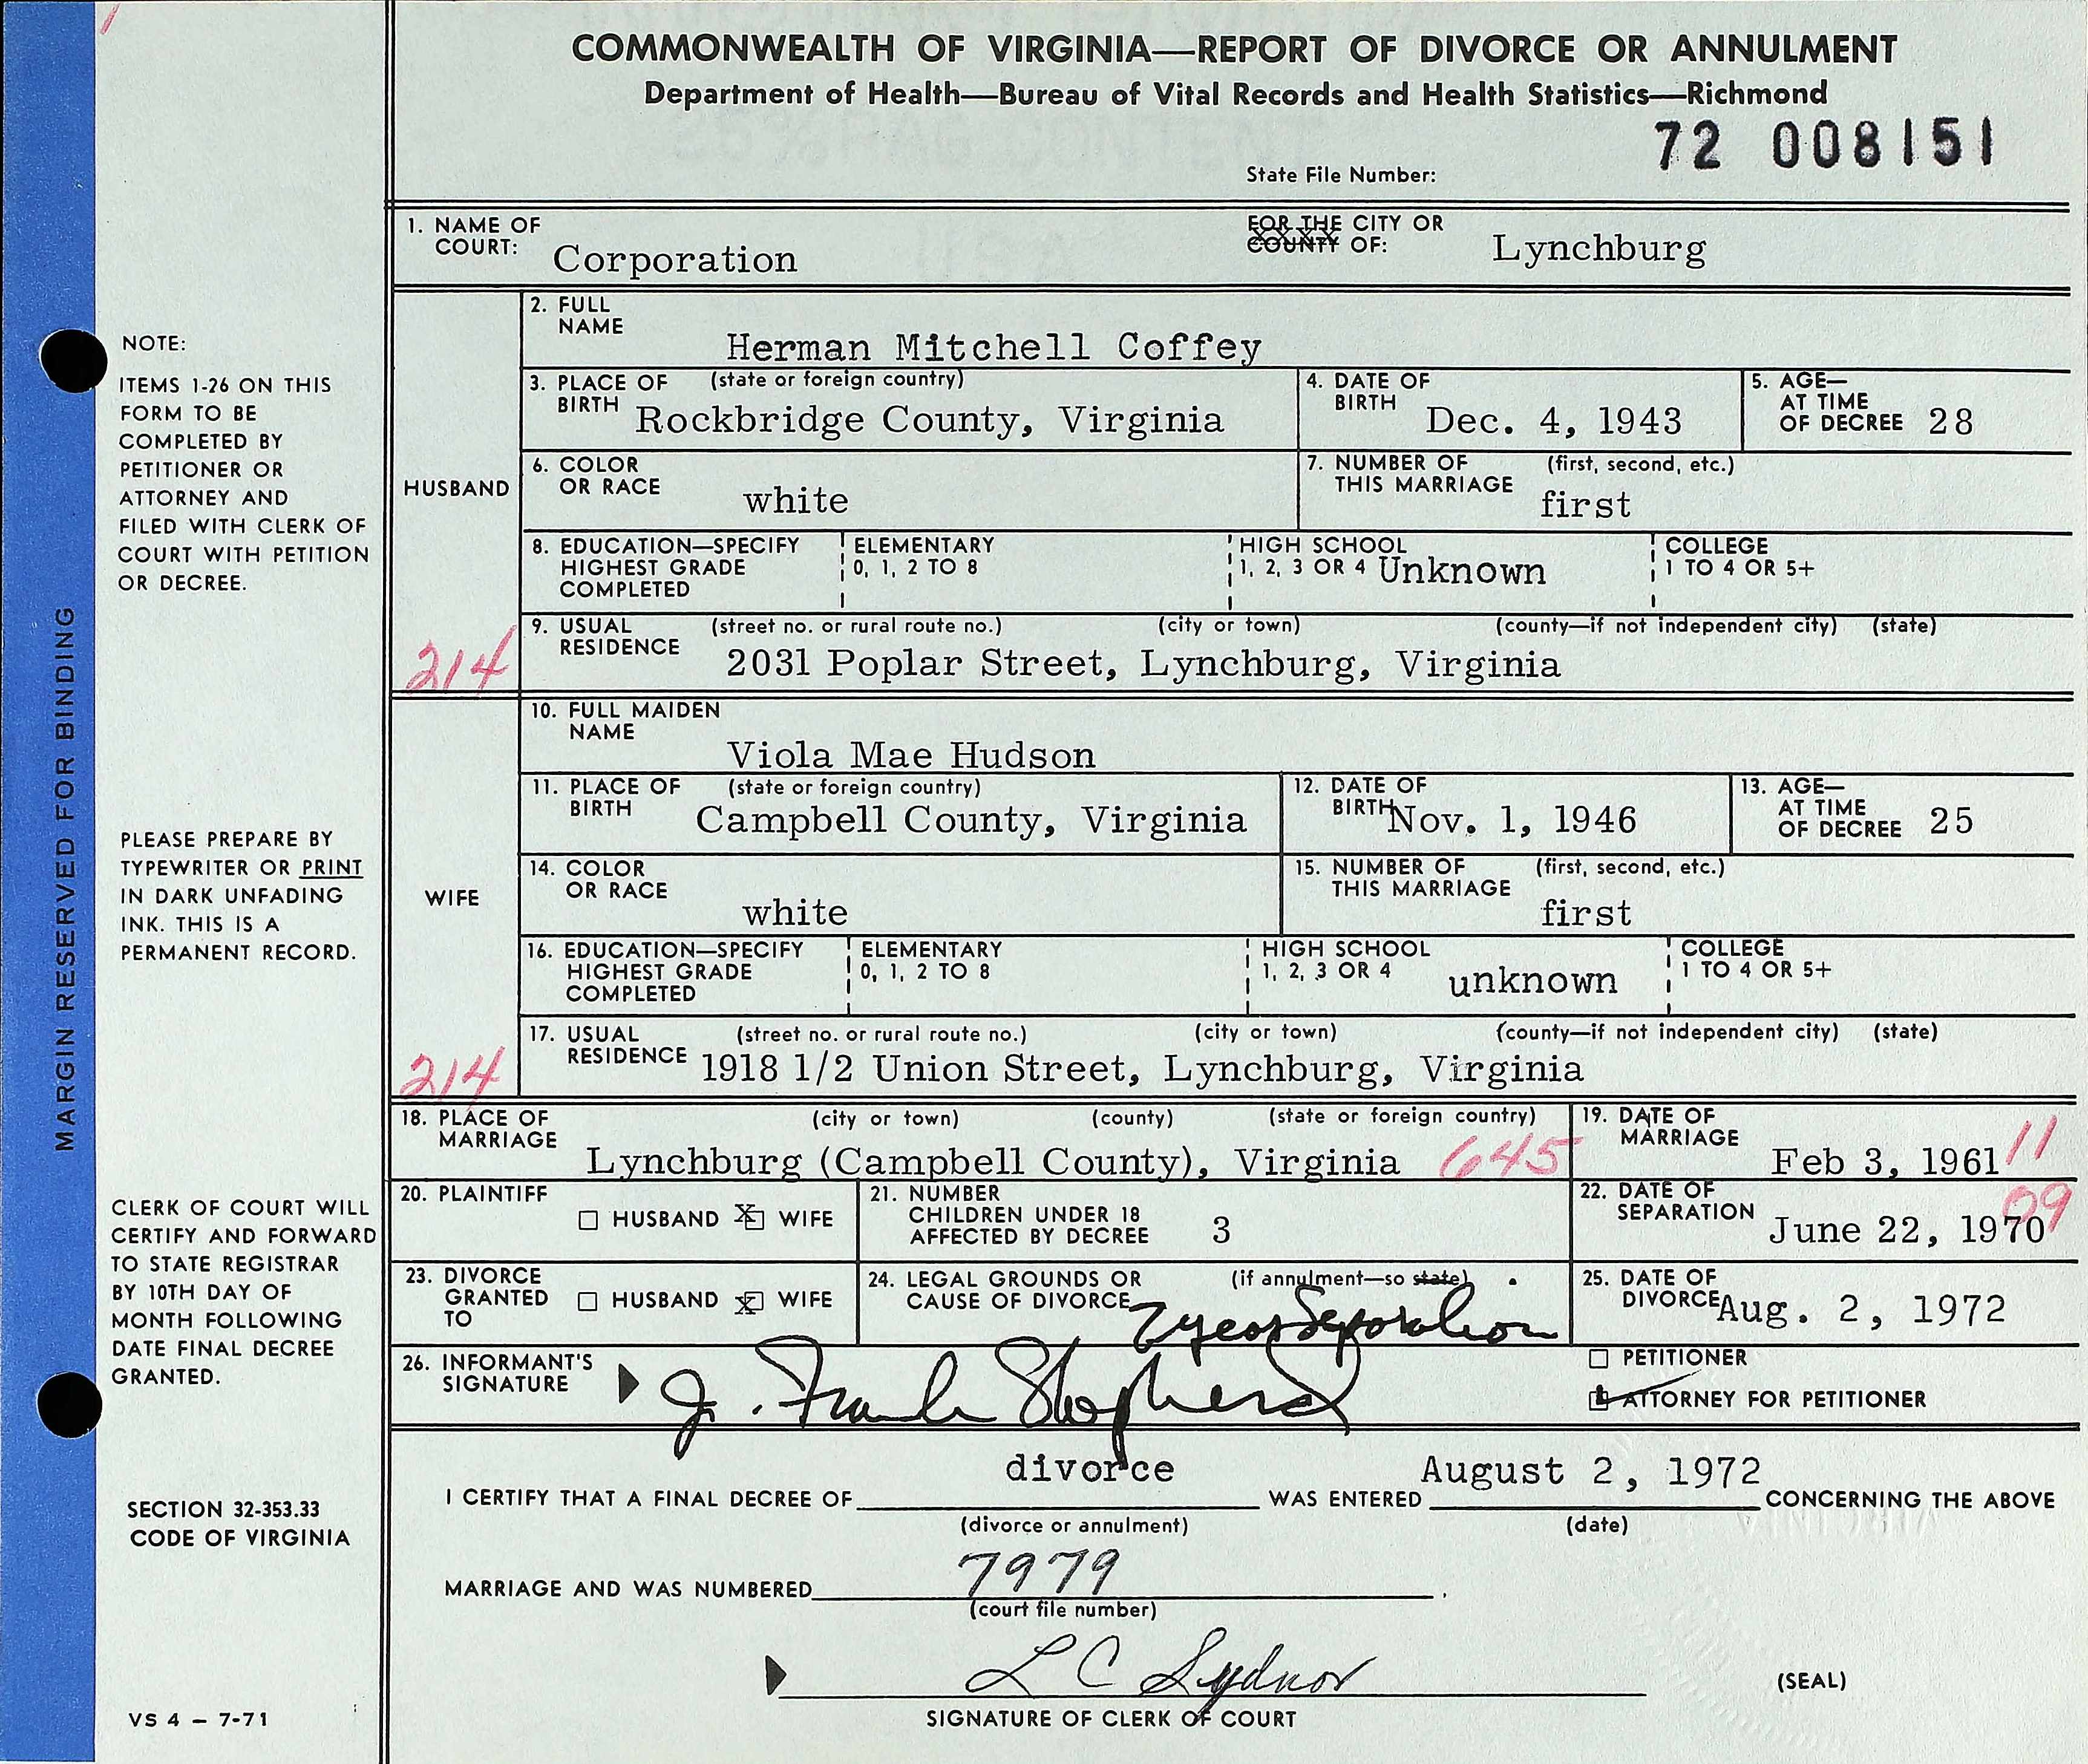 COMMONWEALTH OF VIRGINIA—REPORT OF DIVORCE OR ANNULMENT
Department of Health—Bureau of Vital Records and Health Statistics—Richmond
72 008151
State File Number:
1. NAME OF COURT: Corporation
FOR THE CITY OR COUNTY OF: Lynchburg
HUSBAND
2. FULL NAME Herman Mitchell Coffey
3. PLACE OF BIRTH (state or foreign country) Rockbridge County, Virginia
4. DATE OF BIRTH Dec. 4, 1943
5. AGE—AT TIME OF DECREE 28
6. COLOR OR RACE white
7. NUMBER OF THIS MARRIAGE (first, second, etc.) first
8. EDUCATION—SPECIFY HIGHEST GRADE COMPLETED
ELEMENTARY 0, 1, 2 TO 8
HIGH SCHOOL 1, 2, 3 OR 4 Unknown
COLLEGE 1 TO 4 OR 5+
214
9. USUAL RESIDENCE (street no. or rural route no.) (city or town) (county—if not independent city) (state)
2031 Poplar Street, Lynchburg, Virginia
WIFE
10. FULL MAIDEN NAME Viola Mae Hudson
11. PLACE OF BIRTH (state or foreign country) Campbell County, Virginia
12. DATE OF BIRTH Nov. 1, 1946
13. AGE—AT TIME OF DECREE 25
14. COLOR OR RACE white
15. NUMBER OF THIS MARRIAGE (first, second, etc.) first
16. EDUCATION—SPECIFY HIGHEST GRADE COMPLETED
ELEMENTARY 0, 1, 2 TO 8
HIGH SCHOOL 1, 2, 3 OR 4 unknown
COLLEGE 1 TO 4 OR 5+
214
17. USUAL RESIDENCE (street no. or rural route no.) (city or town) (county—if not independent city) (state)
1918 1/2 Union Street, Lynchburg, Virginia
18. PLACE OF MARRIAGE (city or town) (county) (state or foreign country)
Lynchburg (Campbell County), Virginia 645
19. DATE OF MARRIAGE Feb 3, 1961 11
20. PLAINTIFF ☐ HUSBAND X☐ WIFE
21. NUMBER CHILDREN UNDER 18 AFFECTED BY DECREE 3
22. DATE OF SEPARATION June 22, 1970 09
23. DIVORCE GRANTED TO ☐ HUSBAND X☐ WIFE
24. LEGAL GROUNDS OR CAUSE OF DIVORCE (if annulment—so state) 2 year Separation
25. DATE OF DIVORCE Aug. 2, 1972
26. INFORMANT'S SIGNATURE J. Frank Shepherd
☐ PETITIONER
☑ ATTORNEY FOR PETITIONER
I CERTIFY THAT A FINAL DECREE OF divorce WAS ENTERED August 2, 1972 CONCERNING THE ABOVE
(divorce or annulment) (date)
MARRIAGE AND WAS NUMBERED 7979.
(court file number)
L C Sydnor
SIGNATURE OF CLERK OF COURT
(SEAL)
MARGIN RESERVED FOR BINDING
NOTE:
ITEMS 1-26 ON THIS
FORM TO BE
COMPLETED BY
PETITIONER OR
ATTORNEY AND
FILED WITH CLERK OF
COURT WITH PETITION
OR DECREE.
PLEASE PREPARE BY
TYPEWRITER OR PRINT
IN DARK UNFADING
INK. THIS IS A
PERMANENT RECORD.
CLERK OF COURT WILL
CERTIFY AND FORWARD
TO STATE REGISTRAR
BY 10TH DAY OF
MONTH FOLLOWING
DATE FINAL DECREE
GRANTED.
SECTION 32-353.33
CODE OF VIRGINIA
VS 4 – 7-71